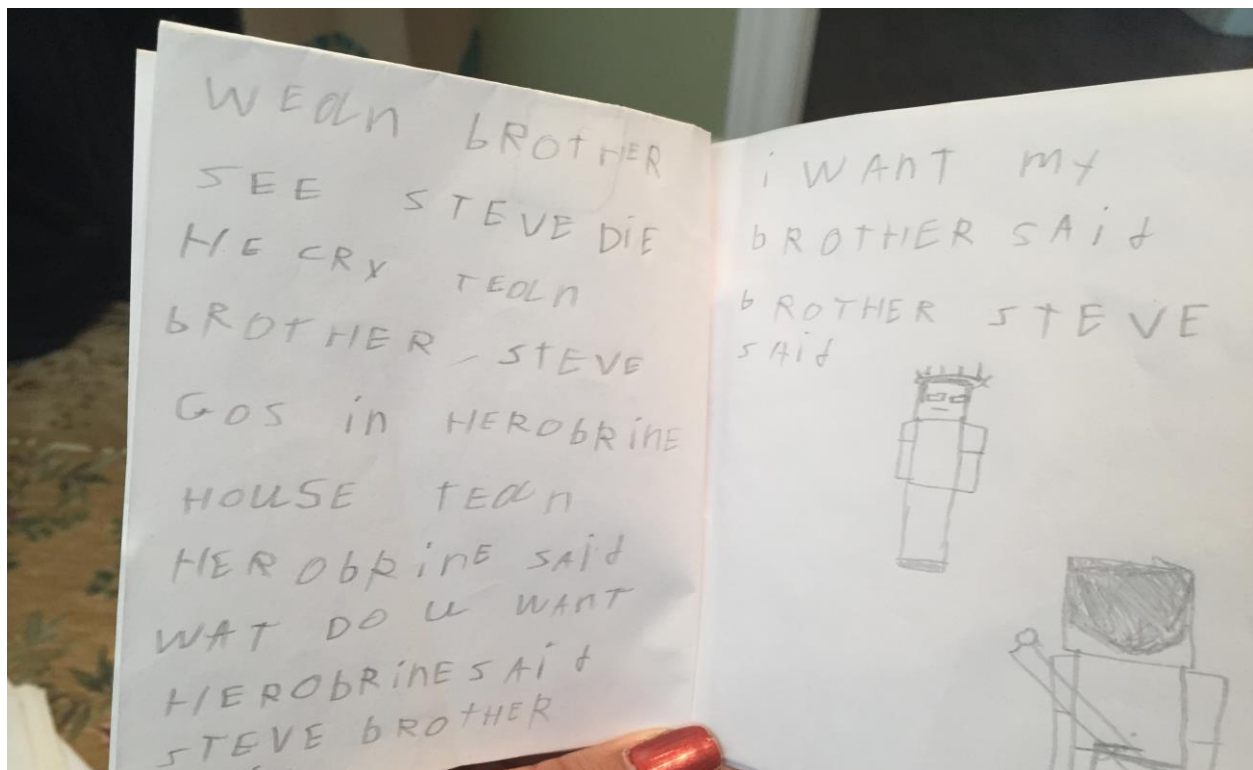 WEAn bROTHER
SEE STEVE DiE
HE CRY TEAn
bROTHER STEVE
GOS in HERObRinE
HOUSE TEAn
HERObRinE SAid
WAT DO U WAnT
HERObRinE SAid
STEVE bROTHER
i WAnT my
bROTHER SAid
bROTHER STEVE
SAid